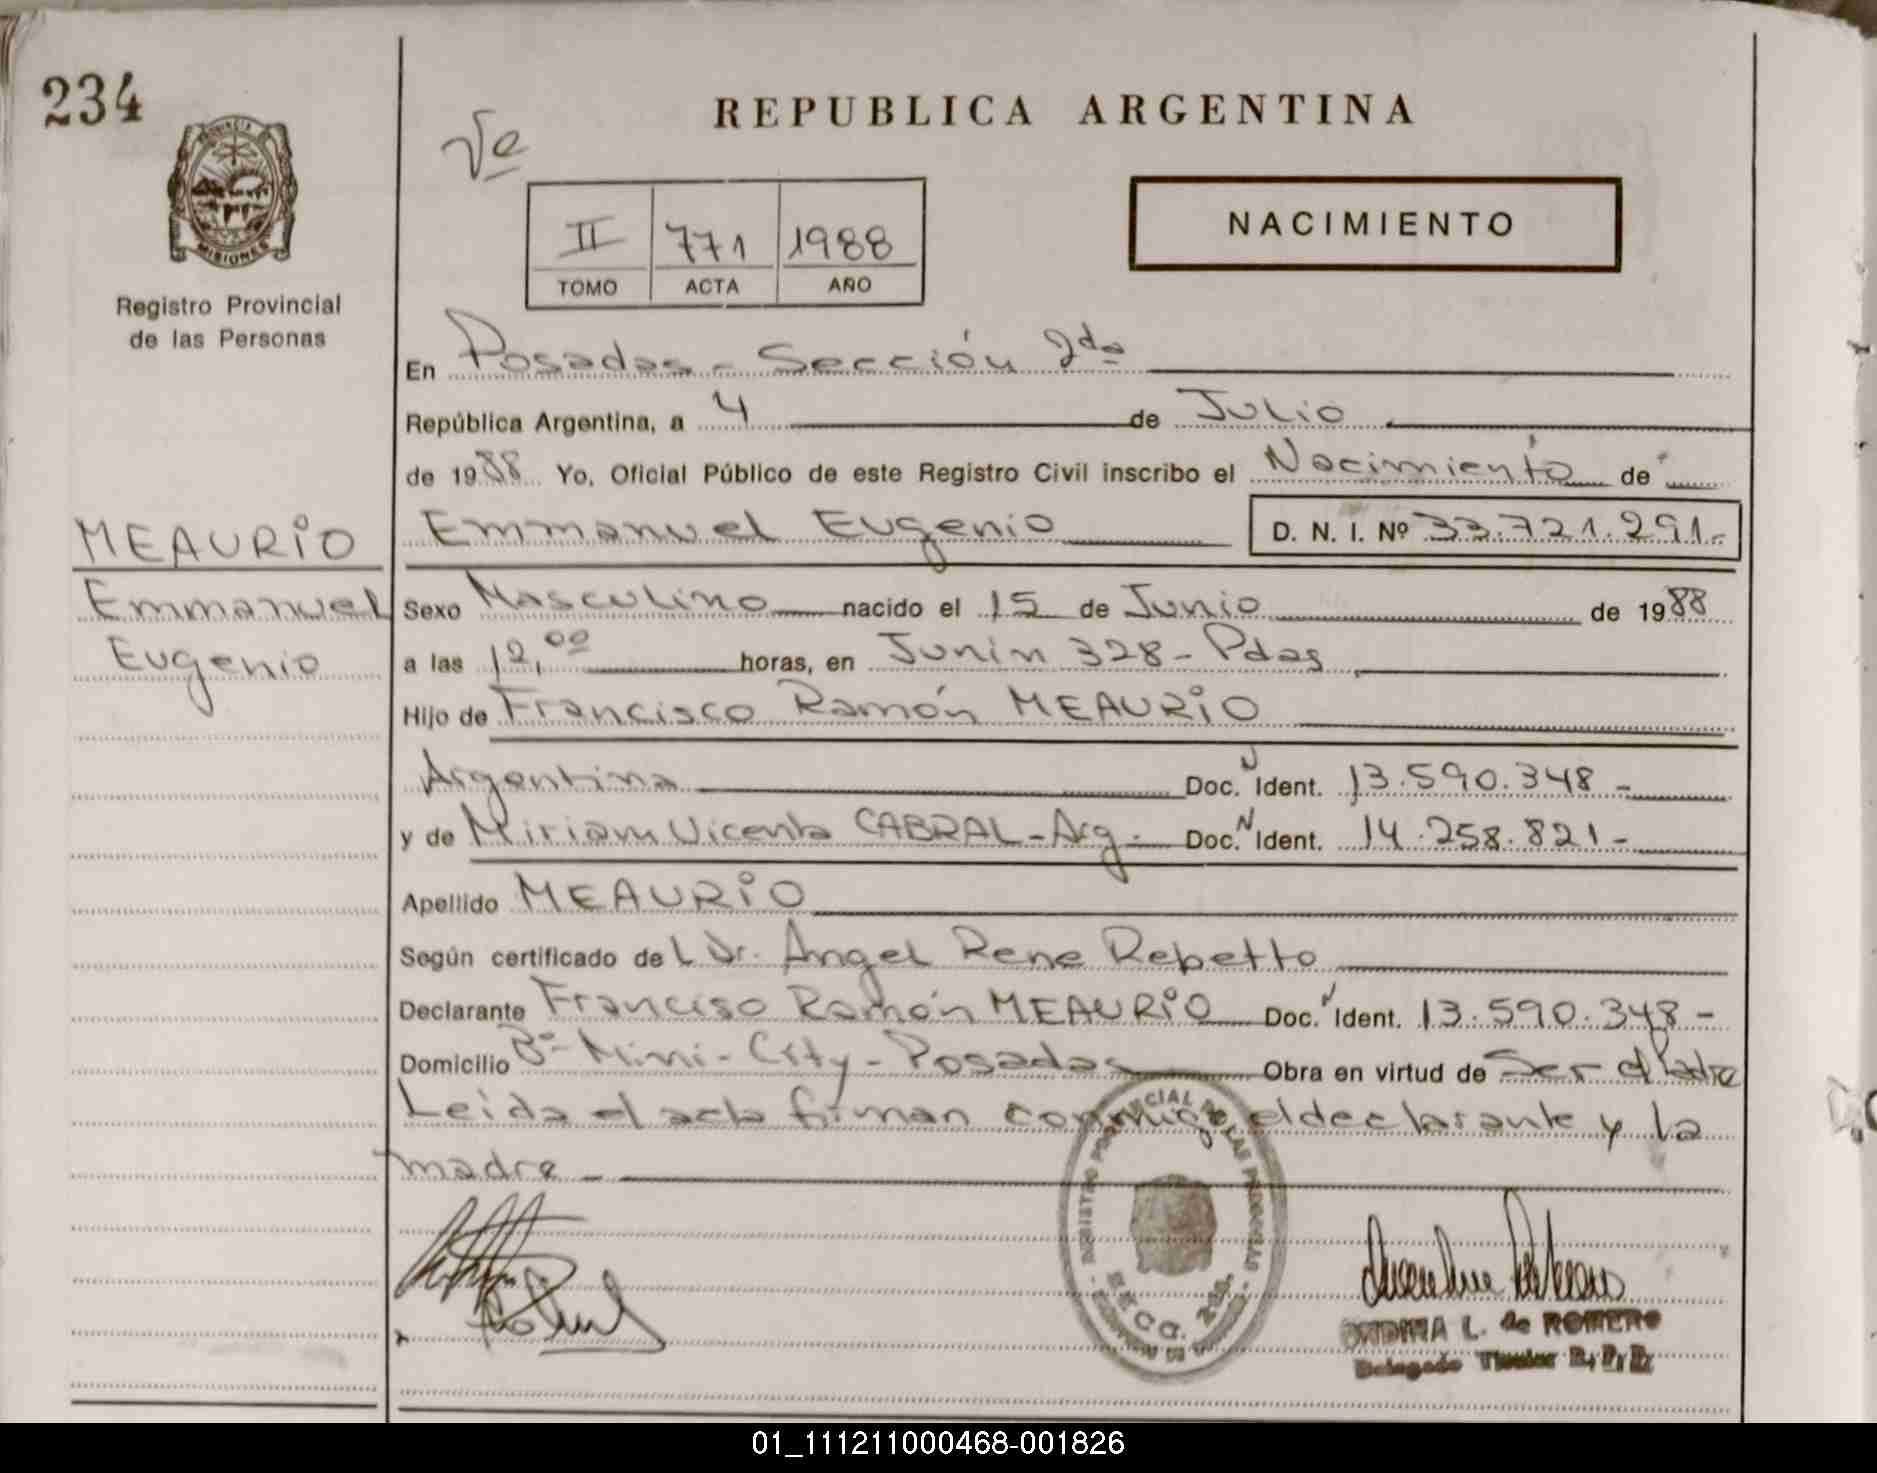 234
REPUBLICA ARGENTINA
PROVINCIA
MISIONES
Registro Provincial
de las Personas
II 771 1988
TOMO ACTA AÑO
NACIMIENTO
En Posadas - Sección 2da
República Argentina, a 4 de Julio
de 1988 Yo, Oficial Público de este Registro Civil inscribo el Nacimiento de
MEAURIO
Emmanuel Eugenio D. N. I. Nº 33.721.291.-
Emmanuel
Eugenio
Sexo Masculino nacido el 15 de Junio de 1988
a las 12,00 horas, en Junín 328 - Pdas
Hijo de Francisco Ramón MEAURIO
Argentina Doc. N Ident. 13.590.348 -
y de Miriam Vicenta CABRAL - Arg. Doc. N Ident. 14.258.821 -
Apellido MEAURIO
Según certificado del Dr. Angel Rene Rebetto
Declarante Franciso Ramón MEAURIO Doc. N Ident. 13.590.348 -
Domicilio Bº Mini-City - Posadas Obra en virtud de Ser el Padre
Leida el acta firman conmigo el declarante y la
madre -
REGISTRO PROVINCIAL DE LAS PERSONAS
SECC. 2da.
ONDINA L. de ROMERO
Delegado Titular R. P. P.
01_111211000468-001826